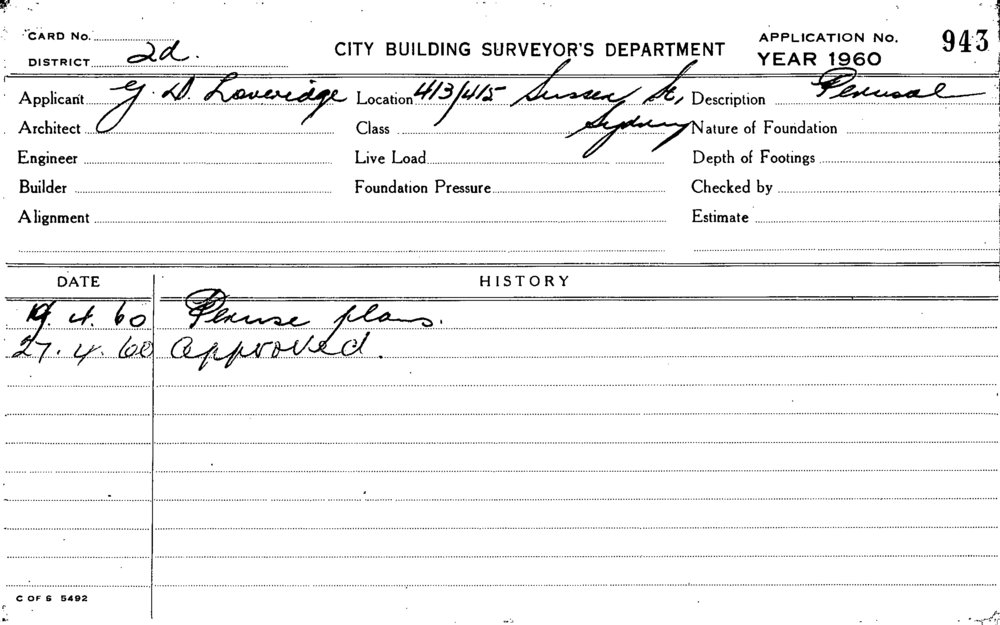 CARD No.
DISTRICT 2d.
CITY BUILDING SURVEYOR'S DEPARTMENT
APPLICATION No. 943
YEAR 1960
Applicant G. D. Loveridge Location 413/415 Sussex St, Sydney Description Perusal
Architect Class Nature of Foundation
Engineer Live Load Depth of Footings
Builder Foundation Pressure Checked by
Alignment Estimate
DATE HISTORY
19. 4. 60 Peruse plans.
27. 4. 60 Approved.
C OF S 5492